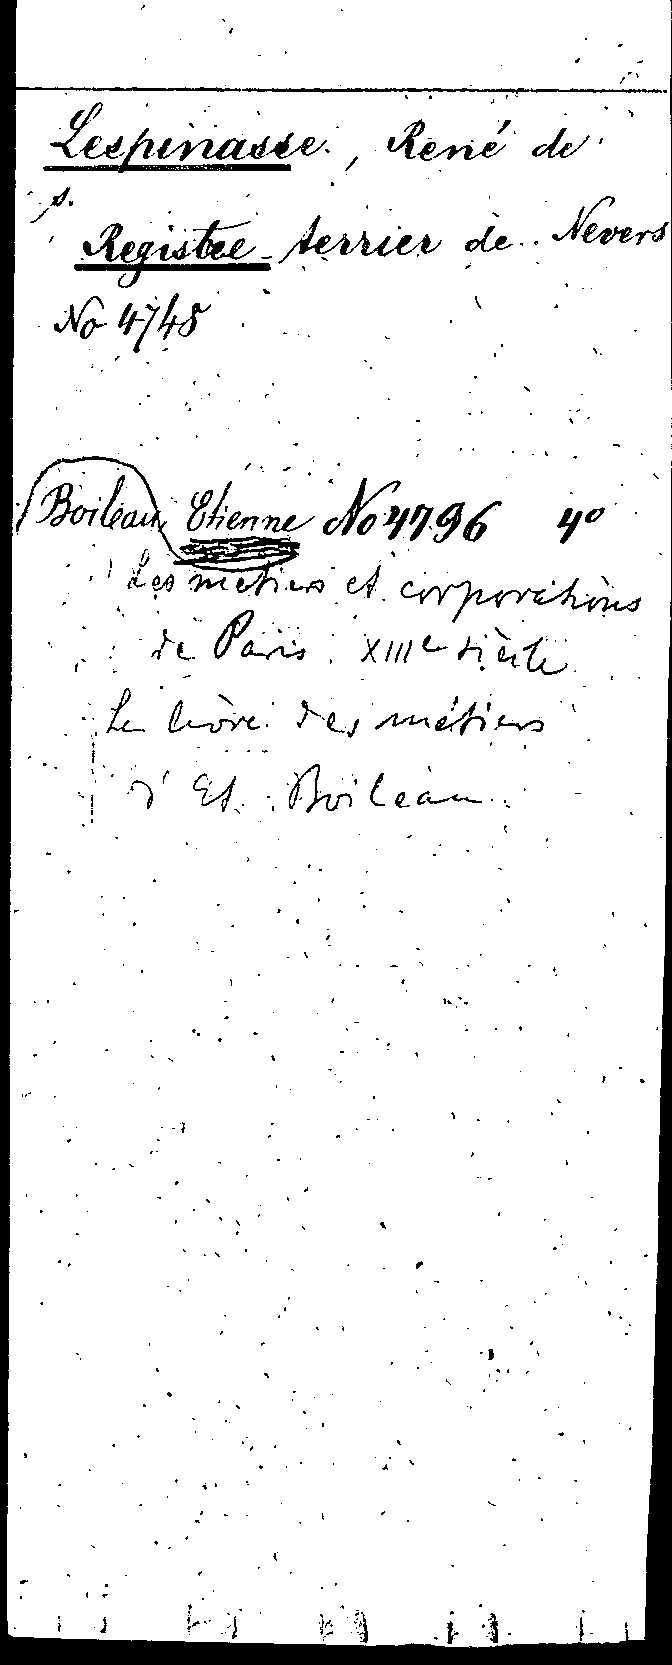 Lespinasse, René de
s.
Registre terrier de Nevers
No 4748
Boileau, Etienne No 4796 4o
Les métiers et corporations
de Paris. XIIIe siècle
Le livre des métiers
d'Et. Boileau.